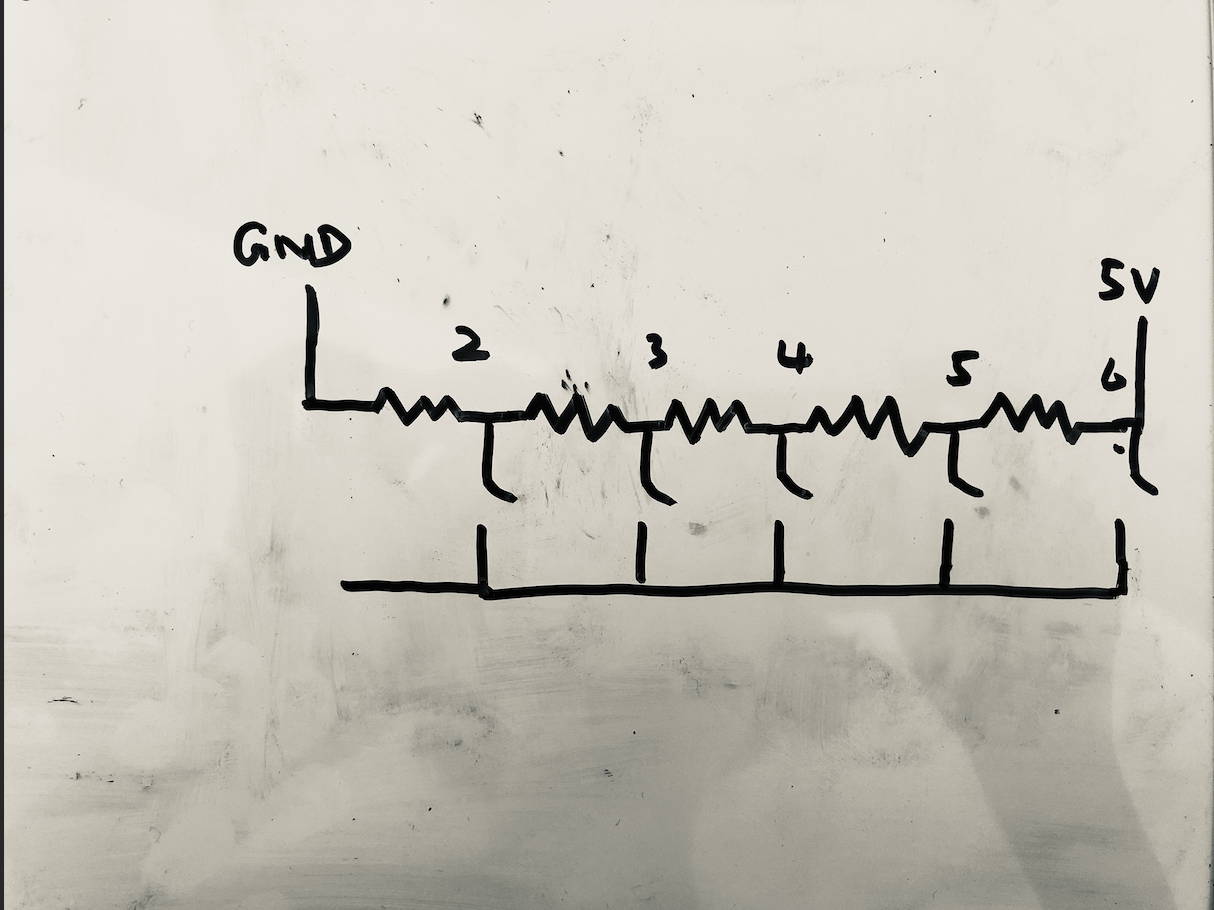 GND
5V
2 3 4 5 6